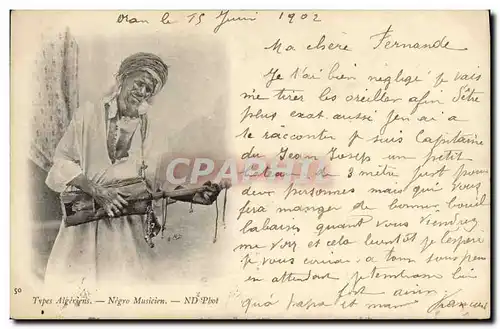 Oran le 15 Juin 1902
Ma chère Fernande
Je t'ai bien négligé je vais
me tirer les oreilles afin d'être
plus exat. aussi j'en ai a
te raconter je suis Capitaine
du Jean Josep un petit
de 3 mètre just pour
deux personnes mais qui vous
fera manger de bonnes bouil
labaises quant vous viendrez
me voir et cela bientôt je l'espère
je vous a tous
en attendant je t'embrasse bien
fort ainsi
qua papa et mama François
CPARAMA
50
Types Algériens. — Nègre Musicien. — ND Phot